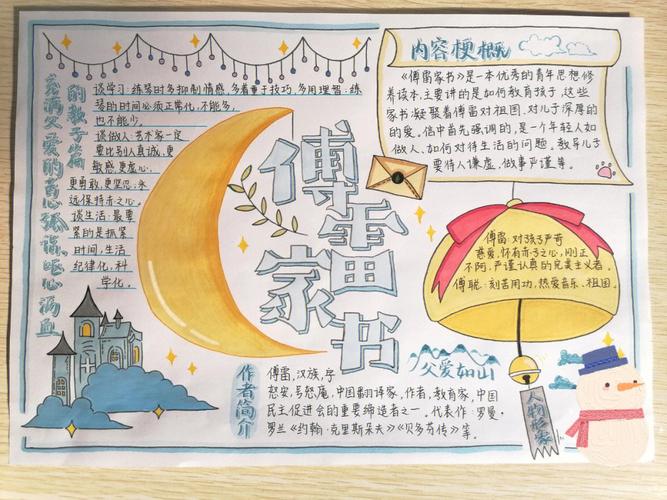 充满父爱的苦心孤诣、呕心沥血
的教子篇
谈学习:练琴时多抑制情感,多着重于技巧,多用理智;练
琴的时间必须正常化,不能多,
也不能少。
谈做人:艺术家一定
要比别人真诚,更
敏感更虚心,
更勇敢,更坚忍,永
远保持赤之心。
谈生活:最要
紧的是抓紧
时间,生活
纪律化,科
学化。
傅雷
家书
内容梗概
《傅雷家书》是一本优秀的青年思想修
养读本,主要讲的是如何教育孩子,这些
家书凝聚着傅雷对祖国,对儿子深厚的
的爱,信中首先强调的,是一个年轻人如
何做人、如何对待生活的问题,教导儿子
要待人谦虚,做事严谨等。
傅雷:对孩子严苛
慈爱,怀有赤子之心,刚正
不阿,严谨认真的完美主义者。
傅聪:刻苦用功,热爱音乐、祖国。
父爱如山
人物形象
作者简介
傅雷,汉族,字
怒安,号怒庵,中国翻译家,作者,教育家,中国
民主促进会的重要缔造者之一。代表作:罗曼·
罗兰《约翰·克里斯朵夫》《贝多芬传》等。